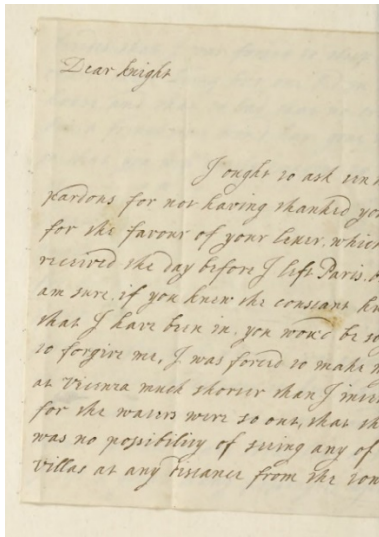 Dear Knight
I ought to ask
pardons for not having thanked you
for the favour of your letter, which
received the day before I left Paris.
am sure, if you knew the constant
that I have been in, you wou'd be so
to forgive me, I was forced to make
at Vicenza much shorter than I
for the waters were so out, that
was no possibility of seing any of
Villas at any distance from the